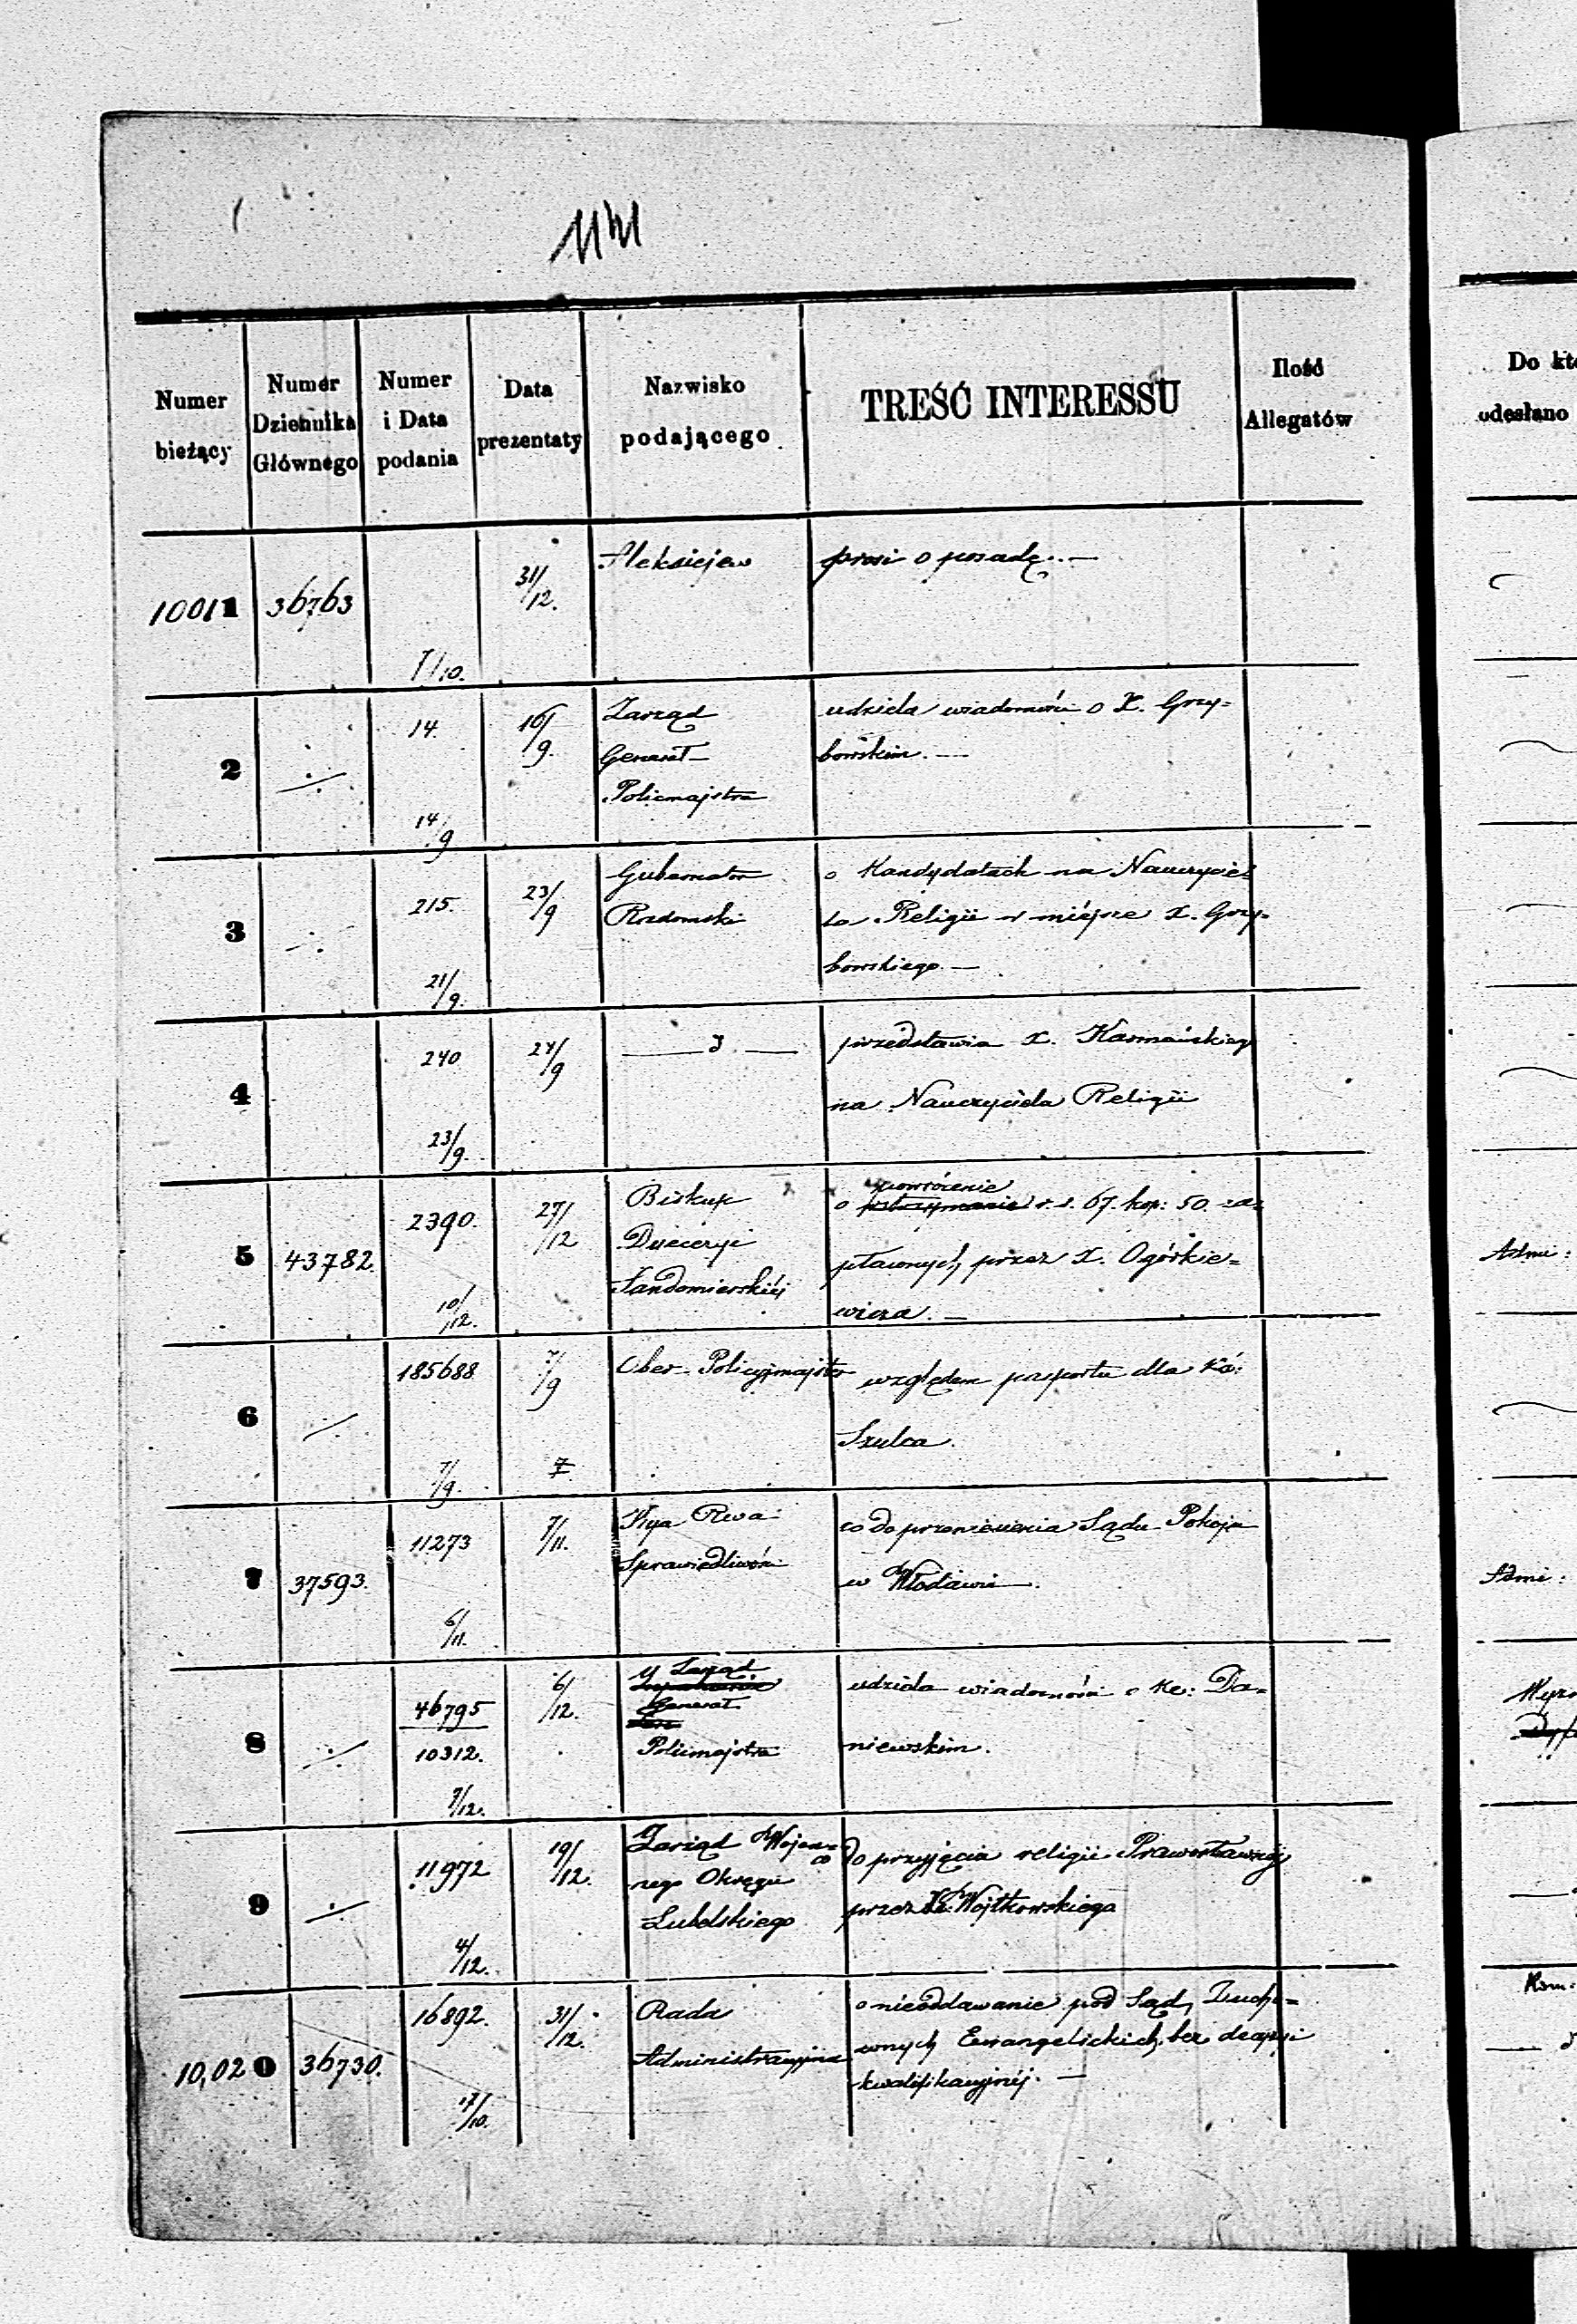 Numer bieżący
Numer Dziennika Głównego
Numer i Data podania
Data prezentaty
Nazwisko podającego
TREŚĆ INTERESSU
Ilość Allegatów
Do kt
odesłano
10011 36763 7/10. 31/12. Aleksiejew prosi o posadę. —
2 14. 14/9 16/9. Zarząd udziela wiadomości o X. Grzy=
Generał bowskim. —
Policmajstra
3 215. 21/9. 23/9 Gubernator o Kandydatach na Nauczycie=
Radomski la Religii w miejsce X. Grzy=
bowskiego. —
4 240 23/9. 24/9 — d. — przedstawia X. Karmańskiego
na Nauczyciela Religii
5 43782. 2390. 10/12. 27/12 Biskup powrócenie
o wstrzymanie r. s. 67. kop: 50. za=
Dyecezyi płaconych przez X. Ogórkie=
Sandomierskiéj wicza. —
Admi:
6 185688 7/9. 7/9 Ober-Policyjmajster względem paszportu dla Xa:
Szulca.
7 37593. 11273 6/11. 7/11. Kya Rwa co do przeniesienia Sądu Pokoju
Sprawiedliwości w Włodawie.
Admi:
8 46795 10312. 7/12. 6/12. Zarząd udziela wiadomości o Ke: Da=
Generał
Policmajstra niewskim.
9 11972 4/12. 19/12. Zarząd Wojen= co do przyjęcia religii Prawosławnéj
nego Okręgu przez X. Wojtkowskiego
Lubelskiego
10,020 36730. 16892. 17/10. 31/12. Rada o nieoddawanie pod Sąd, Ducho=
Administracyjna wnych Ewangelickich bez decyzyi
kwalifikacyjnéj. —
Kom: